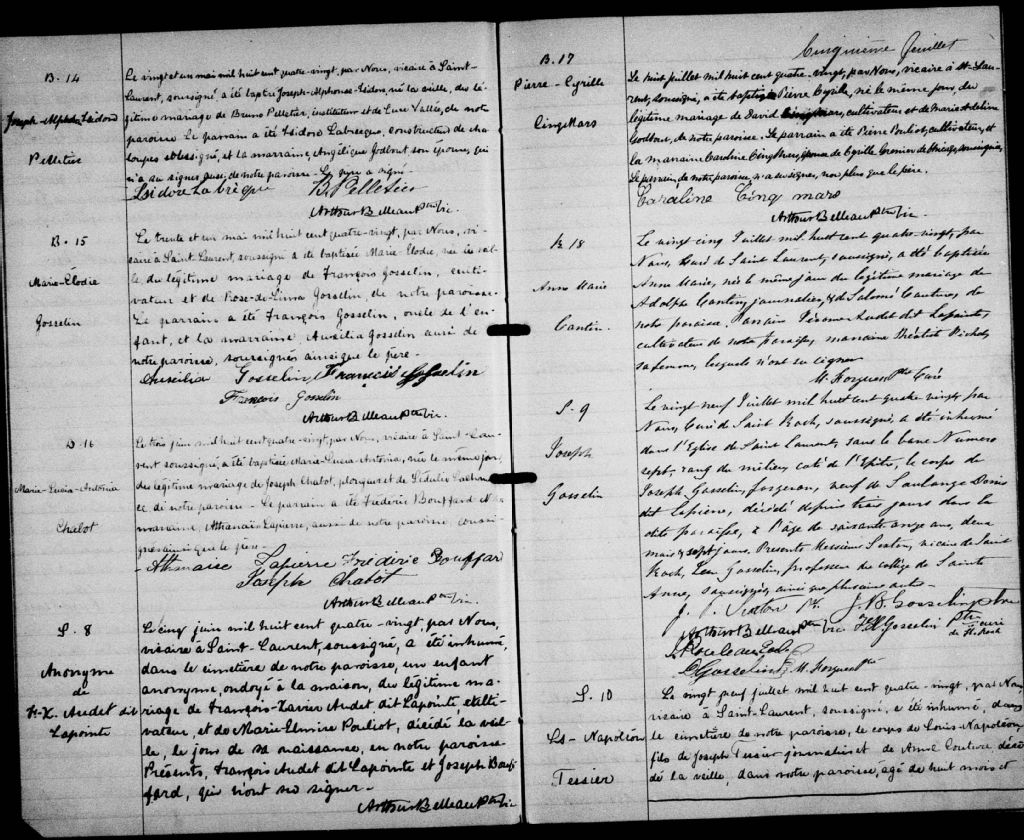 B. 14
Joseph-Alphse-Isidore
Pelletier
Le vingt et un mai mil huit cent quatre-vingt, par Nous, vicaire à Saint-
Laurent, soussigné a été baptisé Joseph-Alphonse-Isidore, né la veille, du lé-
gitime mariage de Bruno Pelletier, instituteur et de Luce Vallée, de notre
paroisse. Le parrain a été Isidore Labrecque, constructeur de cha-
loupes soussigné, et la marraine, Angélique Godbout, son épouse, qui
n'a su signer, aussi de notre paroisse. Le père a signé.
Isidore Labrèque B. Pelletier
Arthur Belleau Ptre Vic.
B. 15
Marie-Élodie
Gosselin
Le trente et un mai mil huit cent quatre-vingt, par Nous, vi-
caire à Saint-Laurent, soussigné a été baptisée Marie-Élodie, née la veil-
le du légitime mariage de François Gosselin, culti-
vateur et de Rose-de-Lima Gosselin, de notre paroisse.
Le parrain a été François Gosselin, oncle de l'en-
fant, et la marraine, Auxilia Gosselin aussi de
notre paroisse, soussignés ainsi que le père.
Auxilia Gosselin François Gosselin
François Gosselin
Arthur Belleau Ptre Vic.
B. 16
Marie-Lucia-Antonia
Chabot
Le trois juin mil huit cent quatre-vingt, par Nous, vicaire à Saint-Lau-
rent soussigné, a été baptisée Marie-Lucia-Antonia, née le même jour,
du légitime mariage de Joseph Chabot, et de
de notre paroisse. Le parrain a été Frédéric Bouffard
marraine, Athanaïs Lapierre, aussi de notre paroisse, soussi-
gnés ainsi que le père.
Athanaise Lapierre Frédéric Bouffar
Joseph Chabot
Arthur Belleau Ptre Vic.
S. 8
Anonyme
de
F-X. Audet dit
Lapointe
Le cinq juin mil huit cent quatre-vingt, par Nous,
vicaire à Saint-Laurent, soussigné, a été inhumé,
dans le cimetière de notre paroisse, un enfant
anonyme, ondoyé à la maison, du légitime ma-
riage de François-Xavier Audet dit Lapointe, culti-
vateur, et de Marie-Elmire Pouliot, décédé la veil-
le, le jour de sa naissance, en notre paroisse.
Présents, François Audet dit Lapointe et Joseph Bouf-
fard, qui n'ont su signer.
Arthur Belleau Ptre Vic
Cinquième feuillet
B. 17
Pierre-Cyrille
Cinq Mars
Le huit juillet mil huit cent quatre-vingt, par Nous, vicaire à St-Lau-
rent, soussigné, a été baptisé Pierre Cyrille, né le même jour, du
légitime mariage de David Cinqmars, cultivateur et de Marie Adeline
Godbout, de notre paroisse. Le parrain a été Pierre Pouliot, cultivateur, et
la marraine Caroline Cinq Mars, épouse de Cyrille Grenier de soussignée.
Le parrain, de notre paroisse, n'a su signer, non plus que le père.
Caraline Cinq mars
Arthur Belleau Ptre Vic.
B. 18
Anne Marie
Cantin
Le vingt cinq Juillet mil huit cent quatre vingt, par
Nous, Curé de Saint Laurent, soussigné, a été baptisée
Anne Marie, née le même jour du légitime mariage de
Adolphe Cantin, journalier, & de Salomé Couture, de
notre paroisse. Parrain Audet dit Lapointe,
cultivateur de notre paroisse, marraine
sa femme, lesquels n'ont su signer.
M. Forgues Ptre Curé
S. 9
Joseph
Gosselin
Le vingt neuf Juillet mil huit cent quatre vingt, par
Nous, Curé de Saint Roch, soussigné, a été inhumé
dans l'Eglise de Saint Laurent, sous le banc Numéro
sept, rang du milieu, coté de l'Epitre, le corps de
Joseph Gosselin, forgeron, veuf de Soulange Denis
dit Lapierre, décédé depuis trois jours dans la
dite paroisse, à l'âge de soixante onze ans, deux
mois & sept jours. Présents Messieurs Sexton, vicaire de Saint
Roch, Leon Gosselin, professeur du collège de Sainte
Anne, soussignés, ainsi que plusieurs autres.
J. Sexton Ptre J. B. Gosselin Ptre
Arthur Belleau Ptre Vic F. X. Gosselin Ptre
Curé
de St. Roch
Rouleau Eccl.
Gosselin M. Forgues Ptre
S. 10
Ls-Napoléon
Tessier
Le vingt neuf juillet mil huit cent quatre-vingt, par Nous
vicaire à Saint-Laurent, soussigné, a été inhumé, dans
le cimetière de notre paroisse, le corps de Louis-Napoléon,
fils de Joseph Tessier journalier et de Anne Couture décé-
dé la veille, dans notre paroisse, âgé de huit mois et